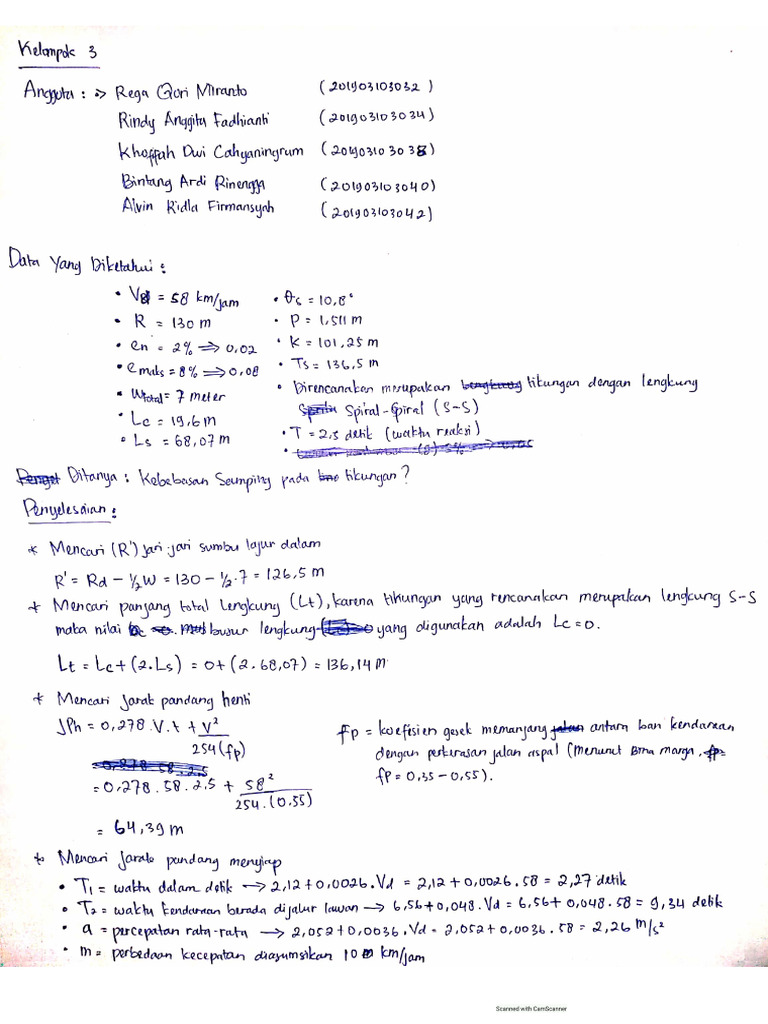 Kelompok 3
Anggota : => Rega Qori Miranto (201903103032)
Rindy Anggita Fadhianti (201903103034)
Khoffah Dwi Cahyaningrum (201903103038)
Bintang Ardi Rinengga (201903103040)
Alvin Ridla Firmansyah (201903103042)
Data Yang Diketahui :
• VR = 58 km/jam
• R = 130 m
• en = 2% => 0,02
• e maks = 8% => 0,08
• Wtotal = 7 meter
• Lc = 19,6 m
• Ls = 68,07 m
• θs = 10,8°
• P = 1,511 m
• K = 101,25 m
• Ts = 136,5 m
• Direncanakan merupakan tikungan dengan lengkung
Spiral-Spiral (S-S)
• T = 2,5 detik (waktu reaksi)
Ditanya : Kebebasan Samping pada tikungan ?
Penyelesaian :
* Mencari (R') jari-jari sumbu lajur dalam
R' = Rd - 1/2 W = 130 - 1/2 . 7 = 126,5 m
* Mencari panjang total lengkung (Lt), karena tikungan yang rencanakan merupakan lengkung S-S
maka nilai busur lengkung yang digunakan adalah Lc = 0.
Lt = Lc + (2. Ls) = 0 + (2. 68,07) = 136,14 m
* Mencari Jarak pandang henti
JPh = 0,278 . V. t + V²/254 (fp)
= 0,278 . 58 . 2,5 + 58²/254 . (0,55)
= 64,39 m
fp = koefisien gesek memanjang antara ban kendaraan
dengan perkerasan jalan aspal (Menurut Bina Marga,
fp = 0,35 - 0,55).
* Mencari Jarak pandang menyiap
• T1 = waktu dalam detik → 2,12 + 0,0026 . Vd = 2,12 + 0,0026 . 58 = 2,27 detik
• T2 = waktu kendaraan berada dijalur lawan → 6,56 + 0,048 . Vd = 6,56 + 0,048 . 58 = 9,34 detik
• a = percepatan rata-rata → 2,052 + 0,0036 . Vd = 2,052 + 0,0036 . 58 = 2,26 m/s²
• m = perbedaan kecepatan diasumsikan 10 km/jam
Scanned with CamScanner